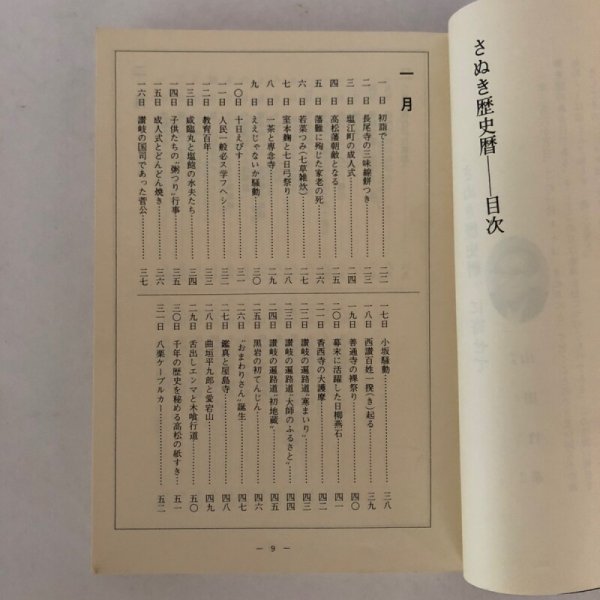 さぬき歴史暦――目次
一月
一日 初詣で……二二
二日 長尾寺の三味線餅つき……二三
三日 塩江町の成人式……二四
四日 高松藩朝敵となる……二五
五日 藩難に殉じた家老の死……二六
六日 若菜つみ(七草雑炊)……二七
七日 室本麹と七日弓祭り……二八
八日 一茶と専念寺……二九
九日 ええじゃないか騒動……三〇
一〇日 十日えびす……三一
一一日 人民一般必ス学フヘシ……三二
一二日 教育百年……三三
一三日 咸臨丸と塩飽の水夫たち……三四
一四日 子供たちの“粥つり”行事……三五
一五日 成人式とどんどん焼き……三六
一六日 讃岐の国司であった菅公……三七
一七日 小坂騒動……三八
一八日 西讃百姓一揆(き)起る……三九
一九日 善通寺の裸祭り……四〇
二〇日 幕末に活躍した日柳燕石……四一
二一日 香西寺の大護摩……四二
二二日 讃岐の遍路道“寒まいり”……四三
二三日 讃岐の遍路道“大師のふるさと”……四四
二四日 讃岐の遍路道“初地蔵”……四五
二五日 黒岩の初てんじん……四六
二六日 “おまわりさん”誕生……四七
二七日 鑑真と屋島寺……四八
二八日 曲垣平九郎と愛宕山……四九
二九日 舌出しエンマと木喰行道……五〇
三〇日 千年の歴史を秘める高松の紙すき……五一
三一日 八栗ケーブルカー……五二
― 9 ―